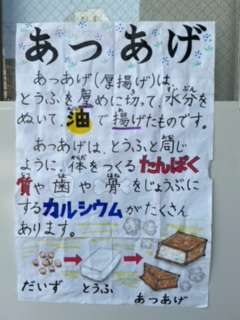 あつあげ
あつあげ(厚揚げ)は、
とうふを厚めに切って、水分を
ぬいて、油で揚げたものです。
あつあげは、とうふと同じ
ように、体をつくるたんぱく
質や歯や骨をじょうぶに
するカルシウムがたくさん
あります。
だいず
とうふ
あつあげ